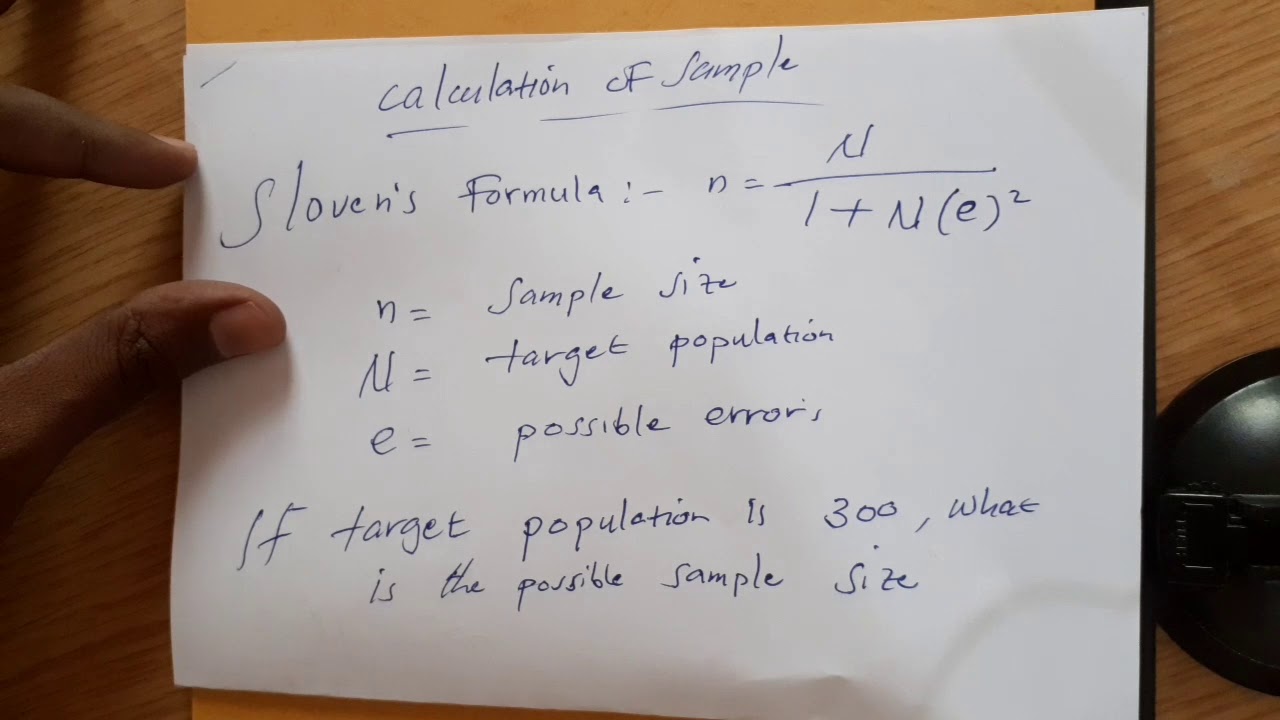 Calculation of Sample
Sloven's Formula:- n = N / 1 + N(e)²
n = Sample size
N = target population
e = possible errors
If target population is 300, what
is the possible sample size